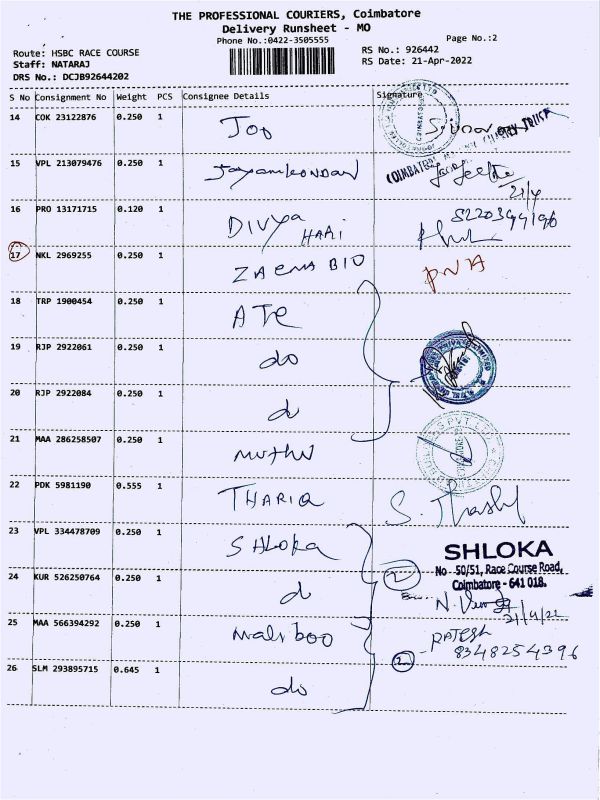 THE PROFESSIONAL COURIERS, Coimbatore
Delivery Runsheet - MO
Phone No.:0422-3505555
Page No.:2
Route: HSBC RACE COURSE
RS No.: 926442
Staff: NATARAJ
RS Date: 21-Apr-2022
DRS No.: DCJB92644202
S No Consignment No Weight PCS Consignee Details Signature
14 COK 23122876 0.250 1 Joo
15 VPL 213079476 0.250 1 Jayamkondan
21/4
16 PRO 13171715 0.120 1 DIVYA HARI
17 NKL 2969255 0.250 1 ZAEMA BIO DNA
18 TRP 1900454 0.250 1 ATE
19 RJP 2922061 0.250 1 do
20 RJP 2922084 0.250 1 d
21 MAA 286258507 0.250 1 muthu
22 PDK 5981190 0.555 1 THARIQ S.
23 VPL 334478709 0.250 1 SHLOKA
SHLOKA
No 50/51, Race Course Road,
Coimbatore - 641 018.
24 KUR 526250764 0.250 1 d 2
21/4/22
25 MAA 566394292 0.250 1
RAJESH
8348254396
26 SLM 293895715 0.645 1 do 2